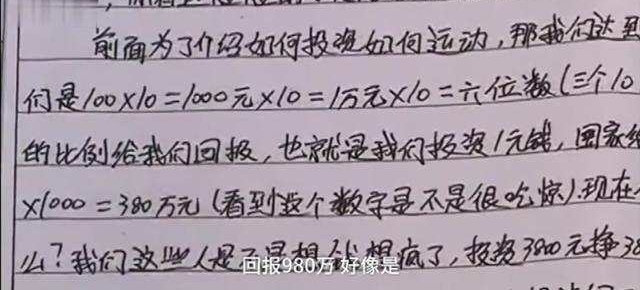 前面为了介绍如何投资如何运动,那我们达到
们是100×10=1000元×10=1万元×10=六位数(三个10
的比例给我们回报,也就是我们投资1元钱,国家给
×1000=380万元(看到这个数字是不是很吃惊).现在
么?我们这些人是不是想钱想疯了,投资3800元挣38
回报980万 好像是